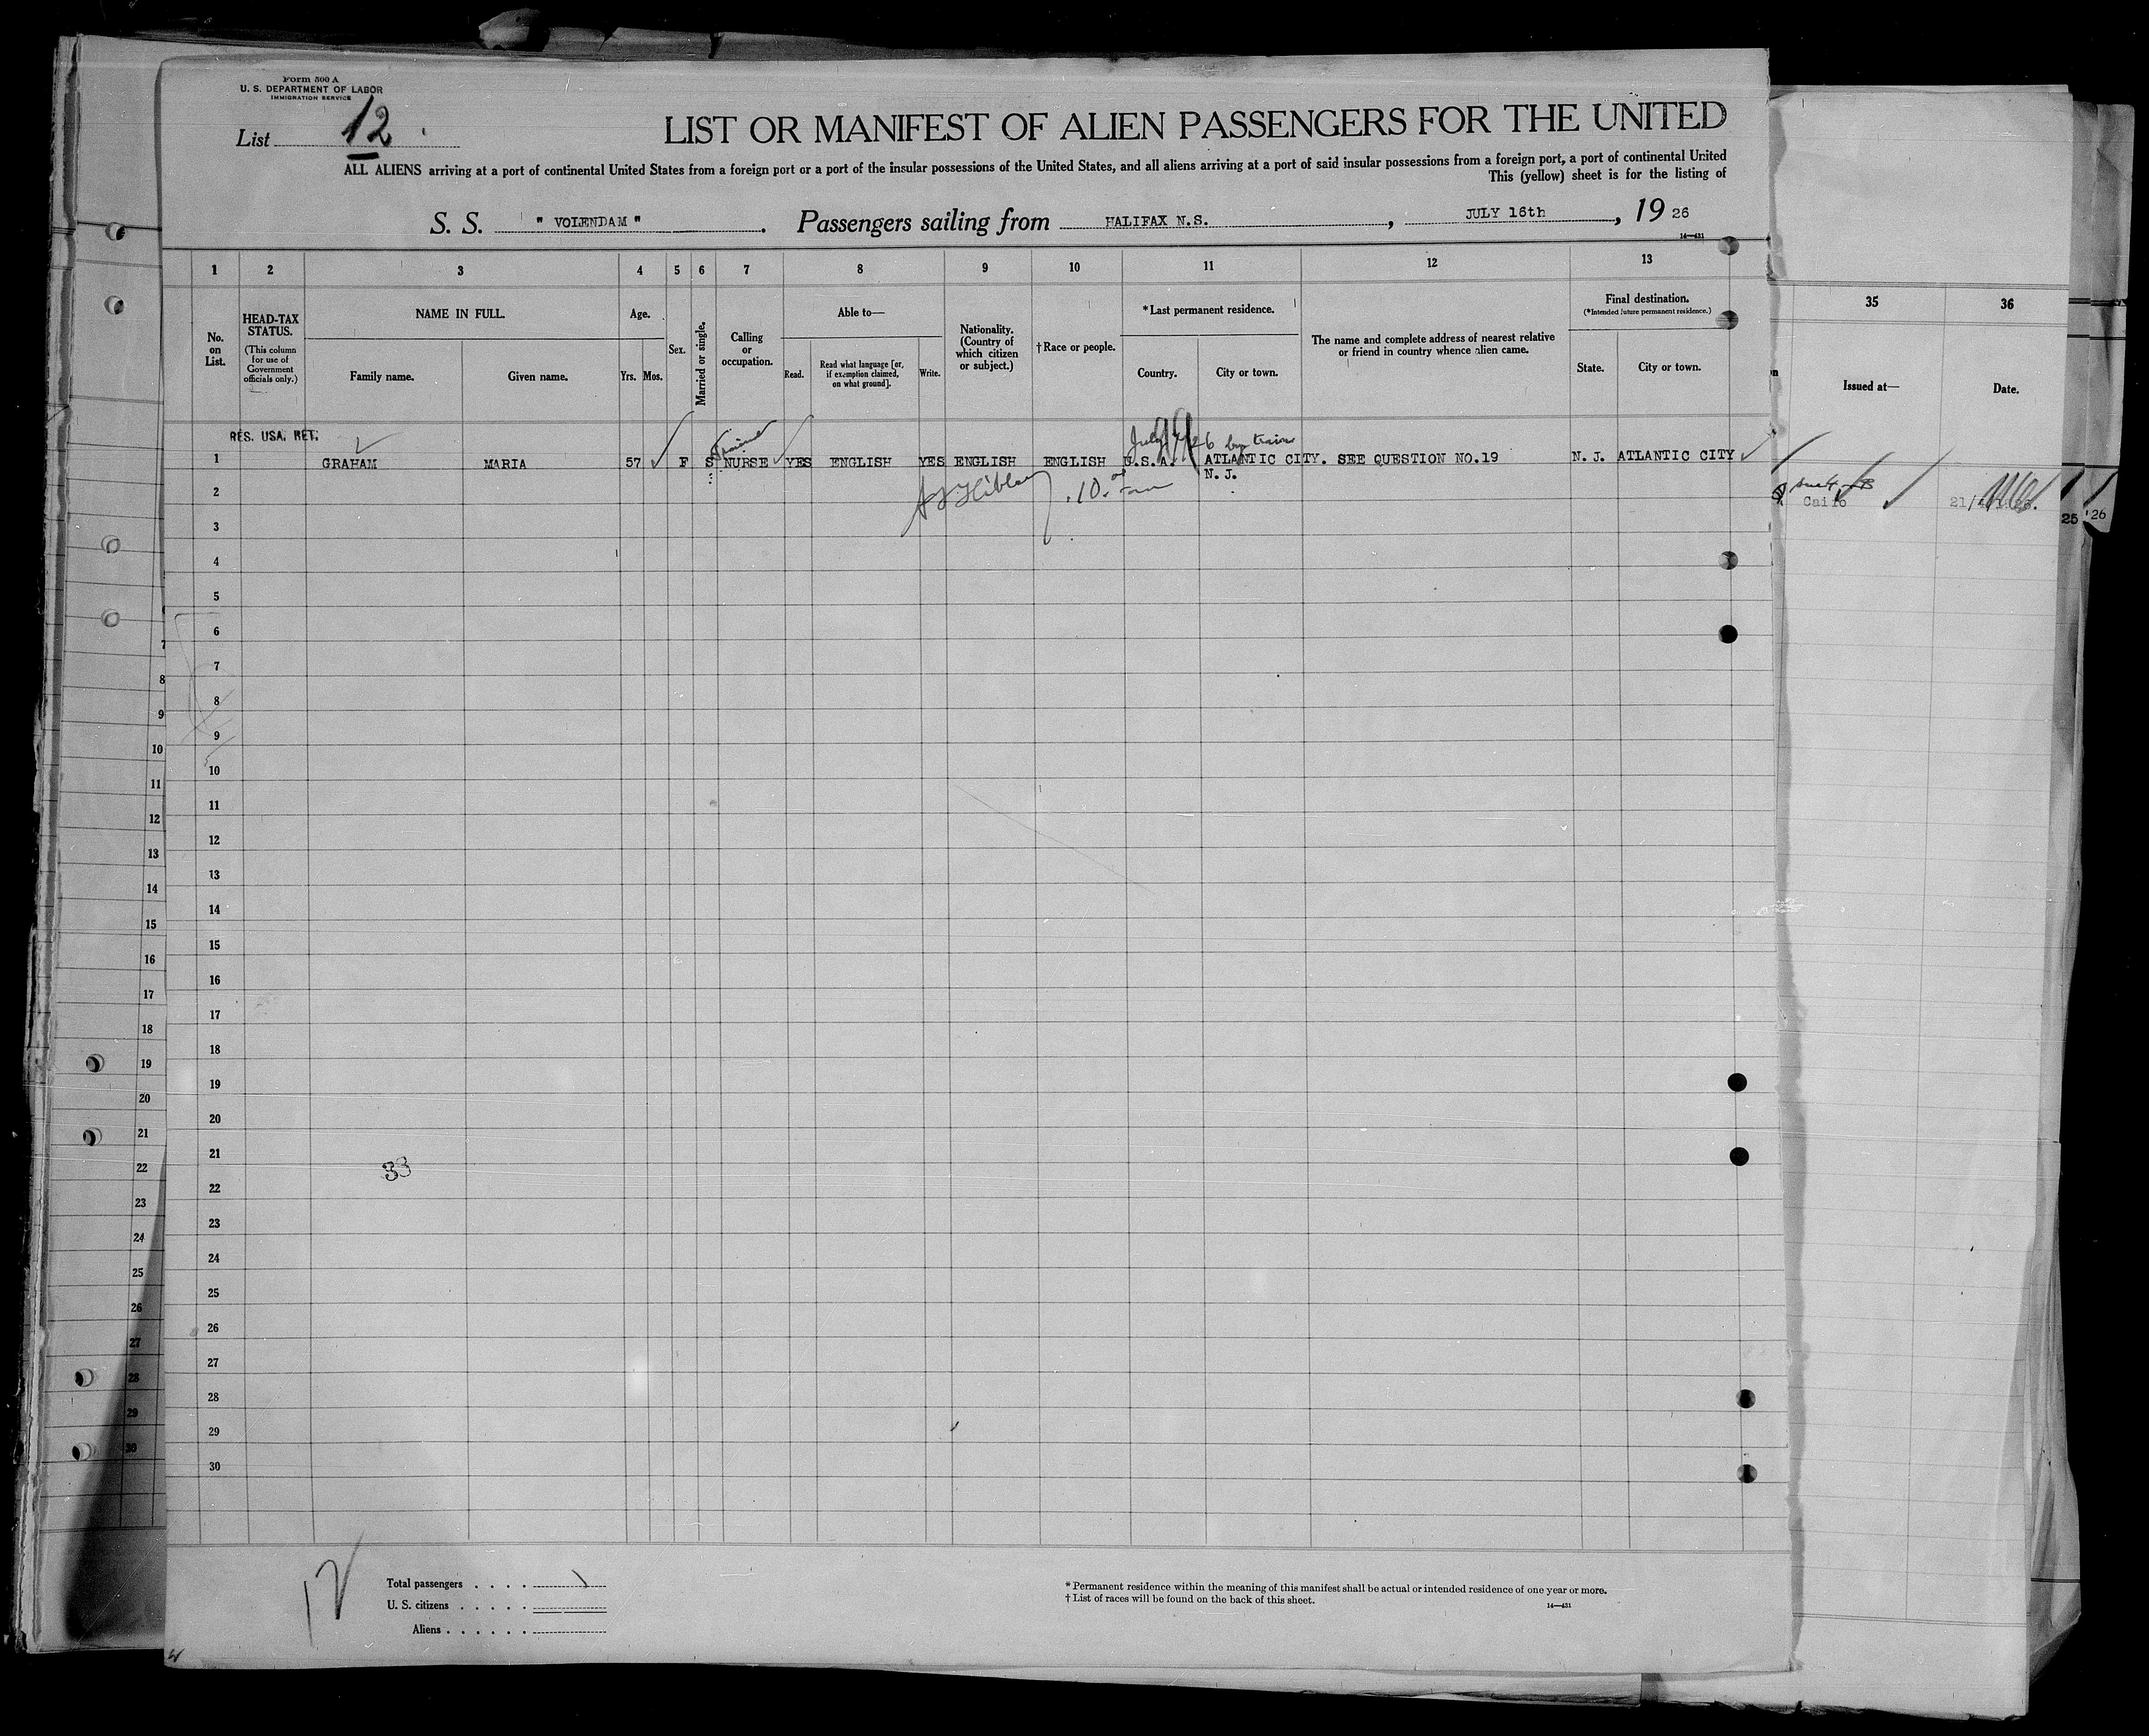 Form 500 A
U. S. DEPARTMENT OF LABOR
IMMIGRATION SERVICE
List 12
LIST OR MANIFEST OF ALIEN PASSENGERS FOR THE UNITED
ALL ALIENS arriving at a port of continental United States from a foreign port or a port of the insular possessions of the United States, and all aliens arriving at a port of said insular possessions from a foreign port, a port of continental United
This (yellow) sheet is for the listing of
S. S. " VOLENDAM " . Passengers sailing from HALIFAX N.S. , JULY 16th , 19 26
14—431
1 2 3 4 5 6 7 8 9 10 11 12 13 35 36
No. on List.
HEAD-TAX STATUS.
(This column for use of Government officials only.)
NAME IN FULL.
Family name. Given name.
Age.
Yrs. Mos.
Sex.
Married or single.
Calling or occupation.
Able to—
Read.
Read what language [or, if exemption claimed, on what ground].
Write.
Nationality. (Country of which citizen or subject.)
†Race or people.
*Last permanent residence.
Country. City or town.
The name and complete address of nearest relative or friend in country whence alien came.
Final destination.
(*Intended future permanent residence.)
State. City or town.
Issued at—
Date.
RES. USA. RET.
Trained
July 26 by train
1 GRAHAM MARIA 57 F S NURSE YES ENGLISH YES ENGLISH ENGLISH U.S.A. ATLANTIC CITY. SEE QUESTION NO.19 N. J. ATLANTIC CITY
N. J.
10
Cairo 21/
25 '26
2
3
4
5
6
7
8
9
10
11
12
13
14
15
16
17
18
19
20
21
33
22
23
24
25
26
27
28
29
30
7
8
9
10
11
12
13
14
15
16
17
18
19
20
21
22
23
24
25
26
27
28
29
30
12
Total passengers . . . .
U. S. citizens . . . . .
Aliens . . . . . .
* Permanent residence within the meaning of this manifest shall be actual or intended residence of one year or more.
† List of races will be found on the back of this sheet.
14—431